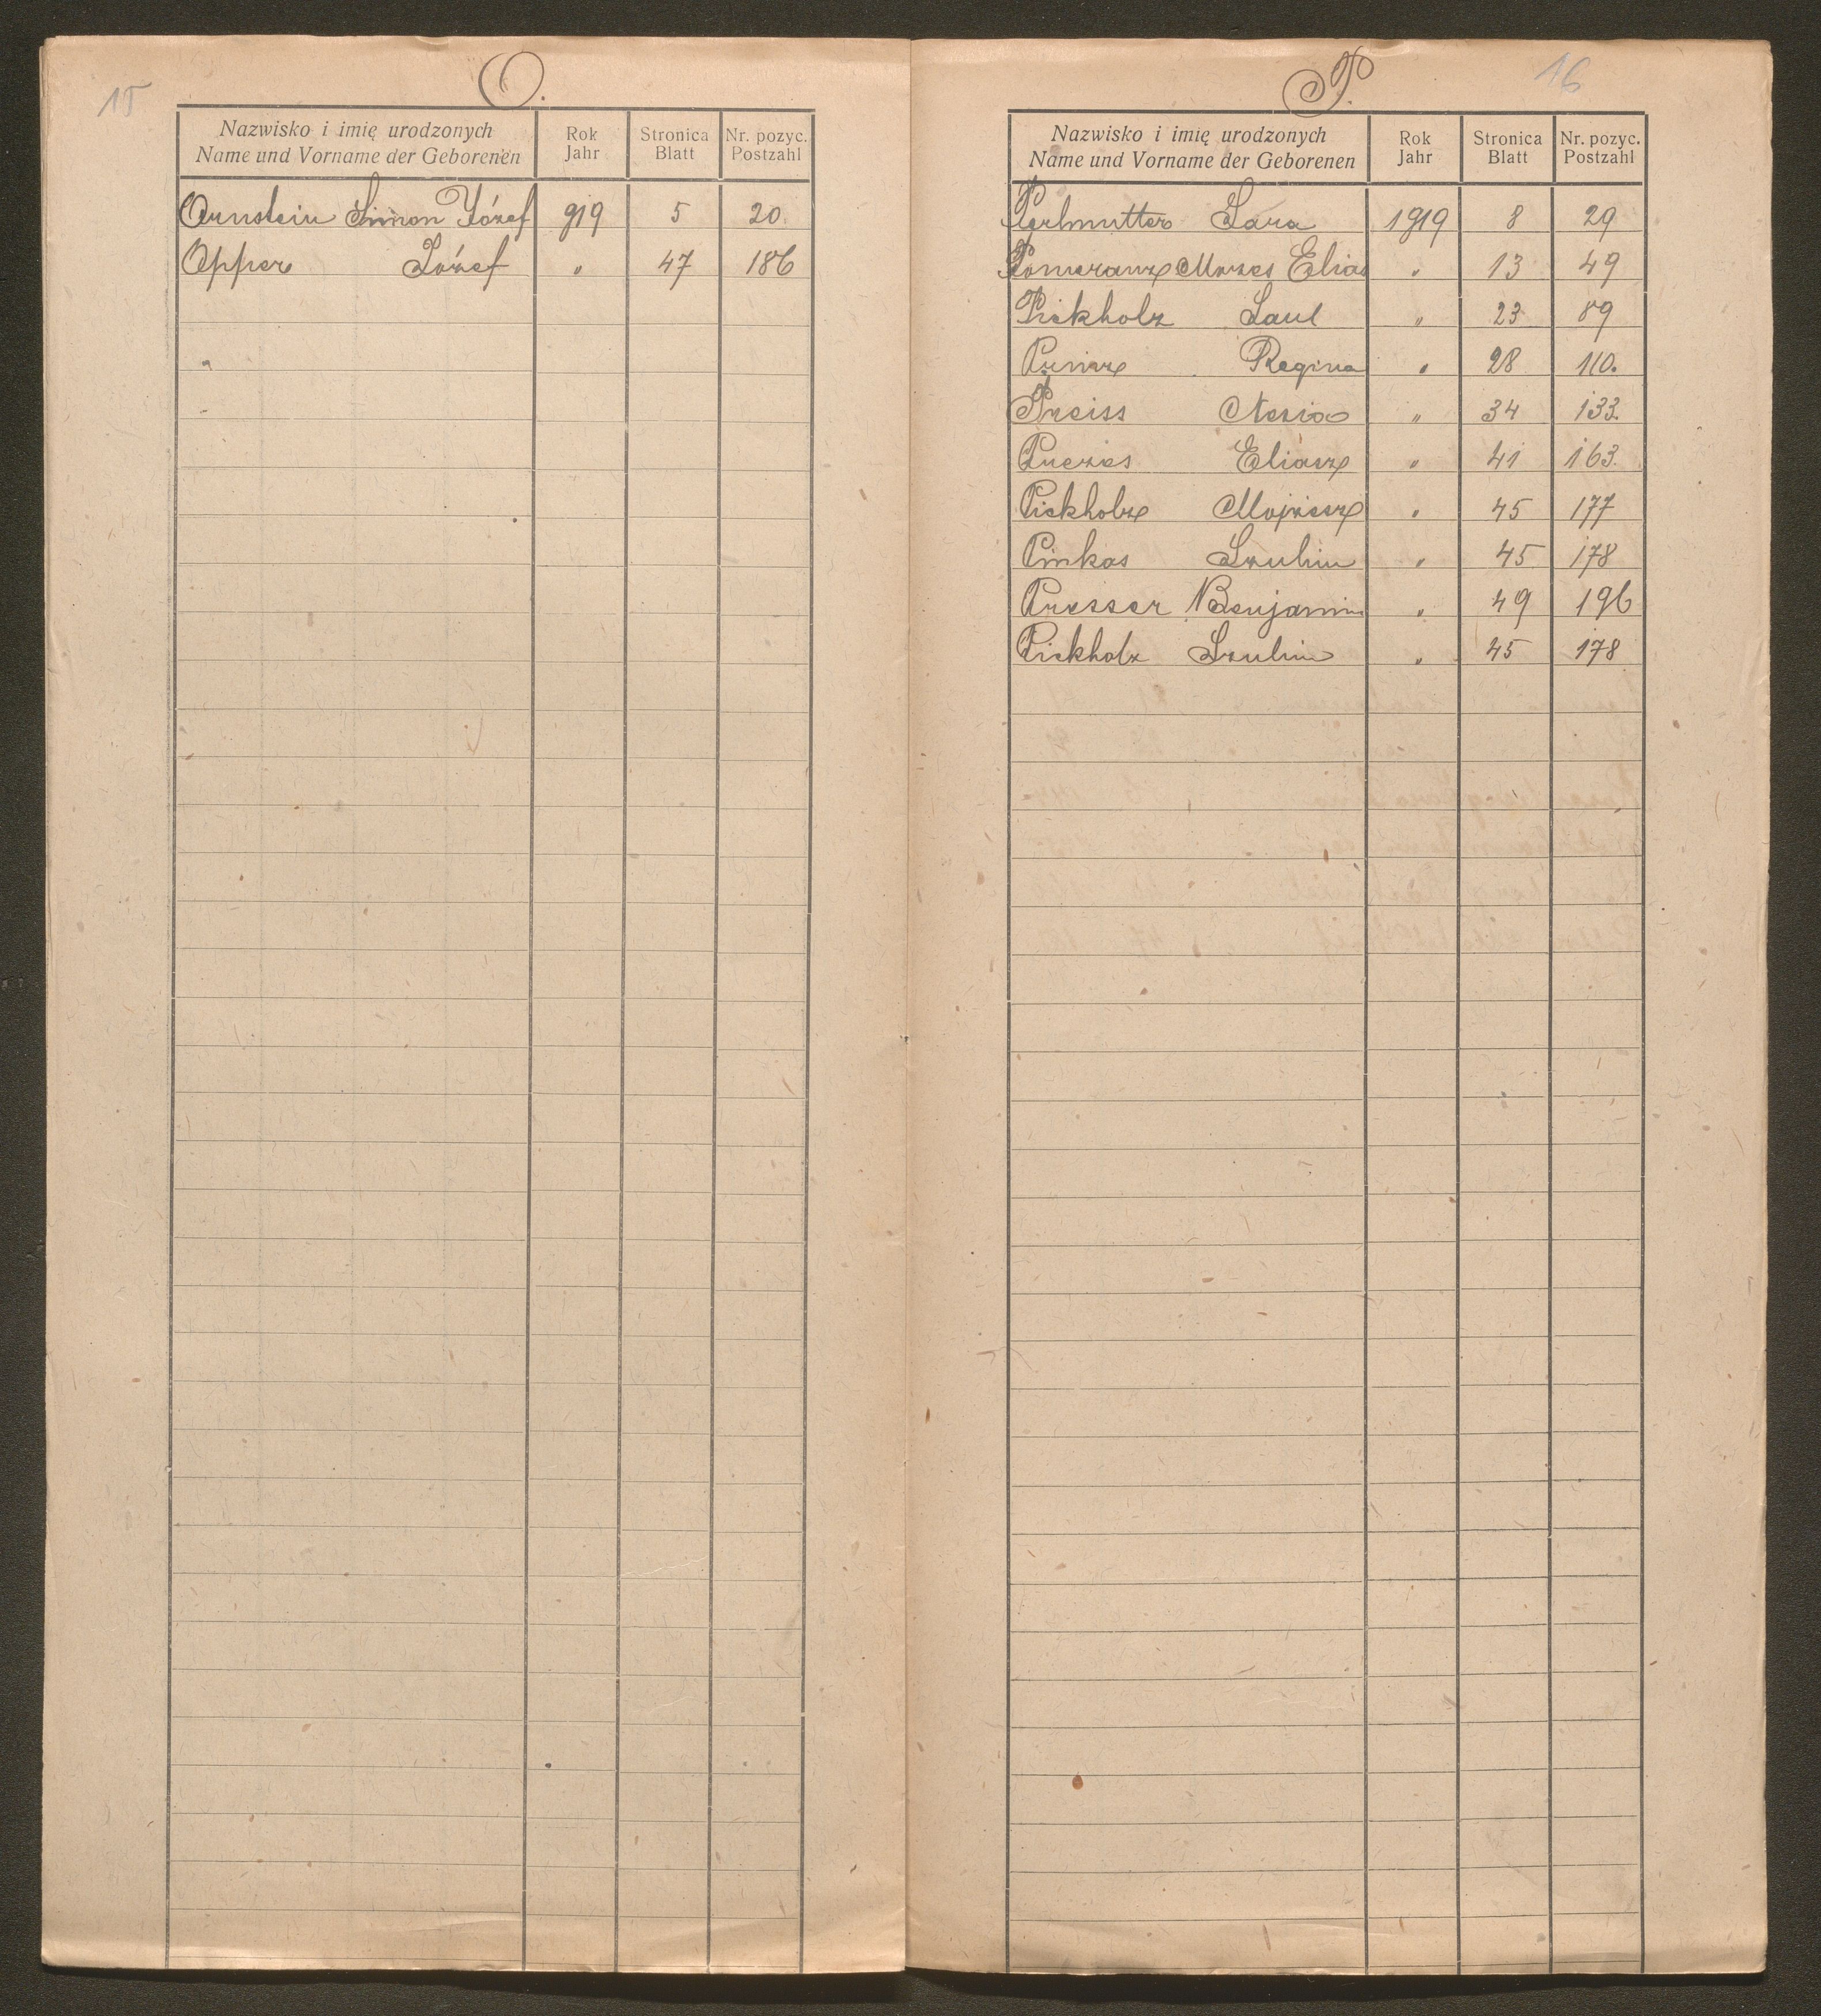 15
O.
Nazwisko i imię urodzonych
Name und Vorname der Geborenen
Rok
Jahr
Stronica
Blatt
Nr. pozyc.
Postzahl
Ornstein Simon Józef 919 5 20.
Opper Józef " 47 186
16
P.
Nazwisko i imię urodzonych
Name und Vorname der Geborenen
Rok
Jahr
Stronica
Blatt
Nr. pozyc.
Postzahl
Perlmutter Sara 1919 8 29
Pomeranz Mozes Elias " 13 49
Pickholz Saul " 23 89
Regina " 28 110.
Preiss " 34 133.
Eliasz " 41 163.
Pickholz Mojżesz " 45 177
Pinkas Szulim " 45 178
Presser Benjamin " 49 196
Pickholz Szulim " 45 178